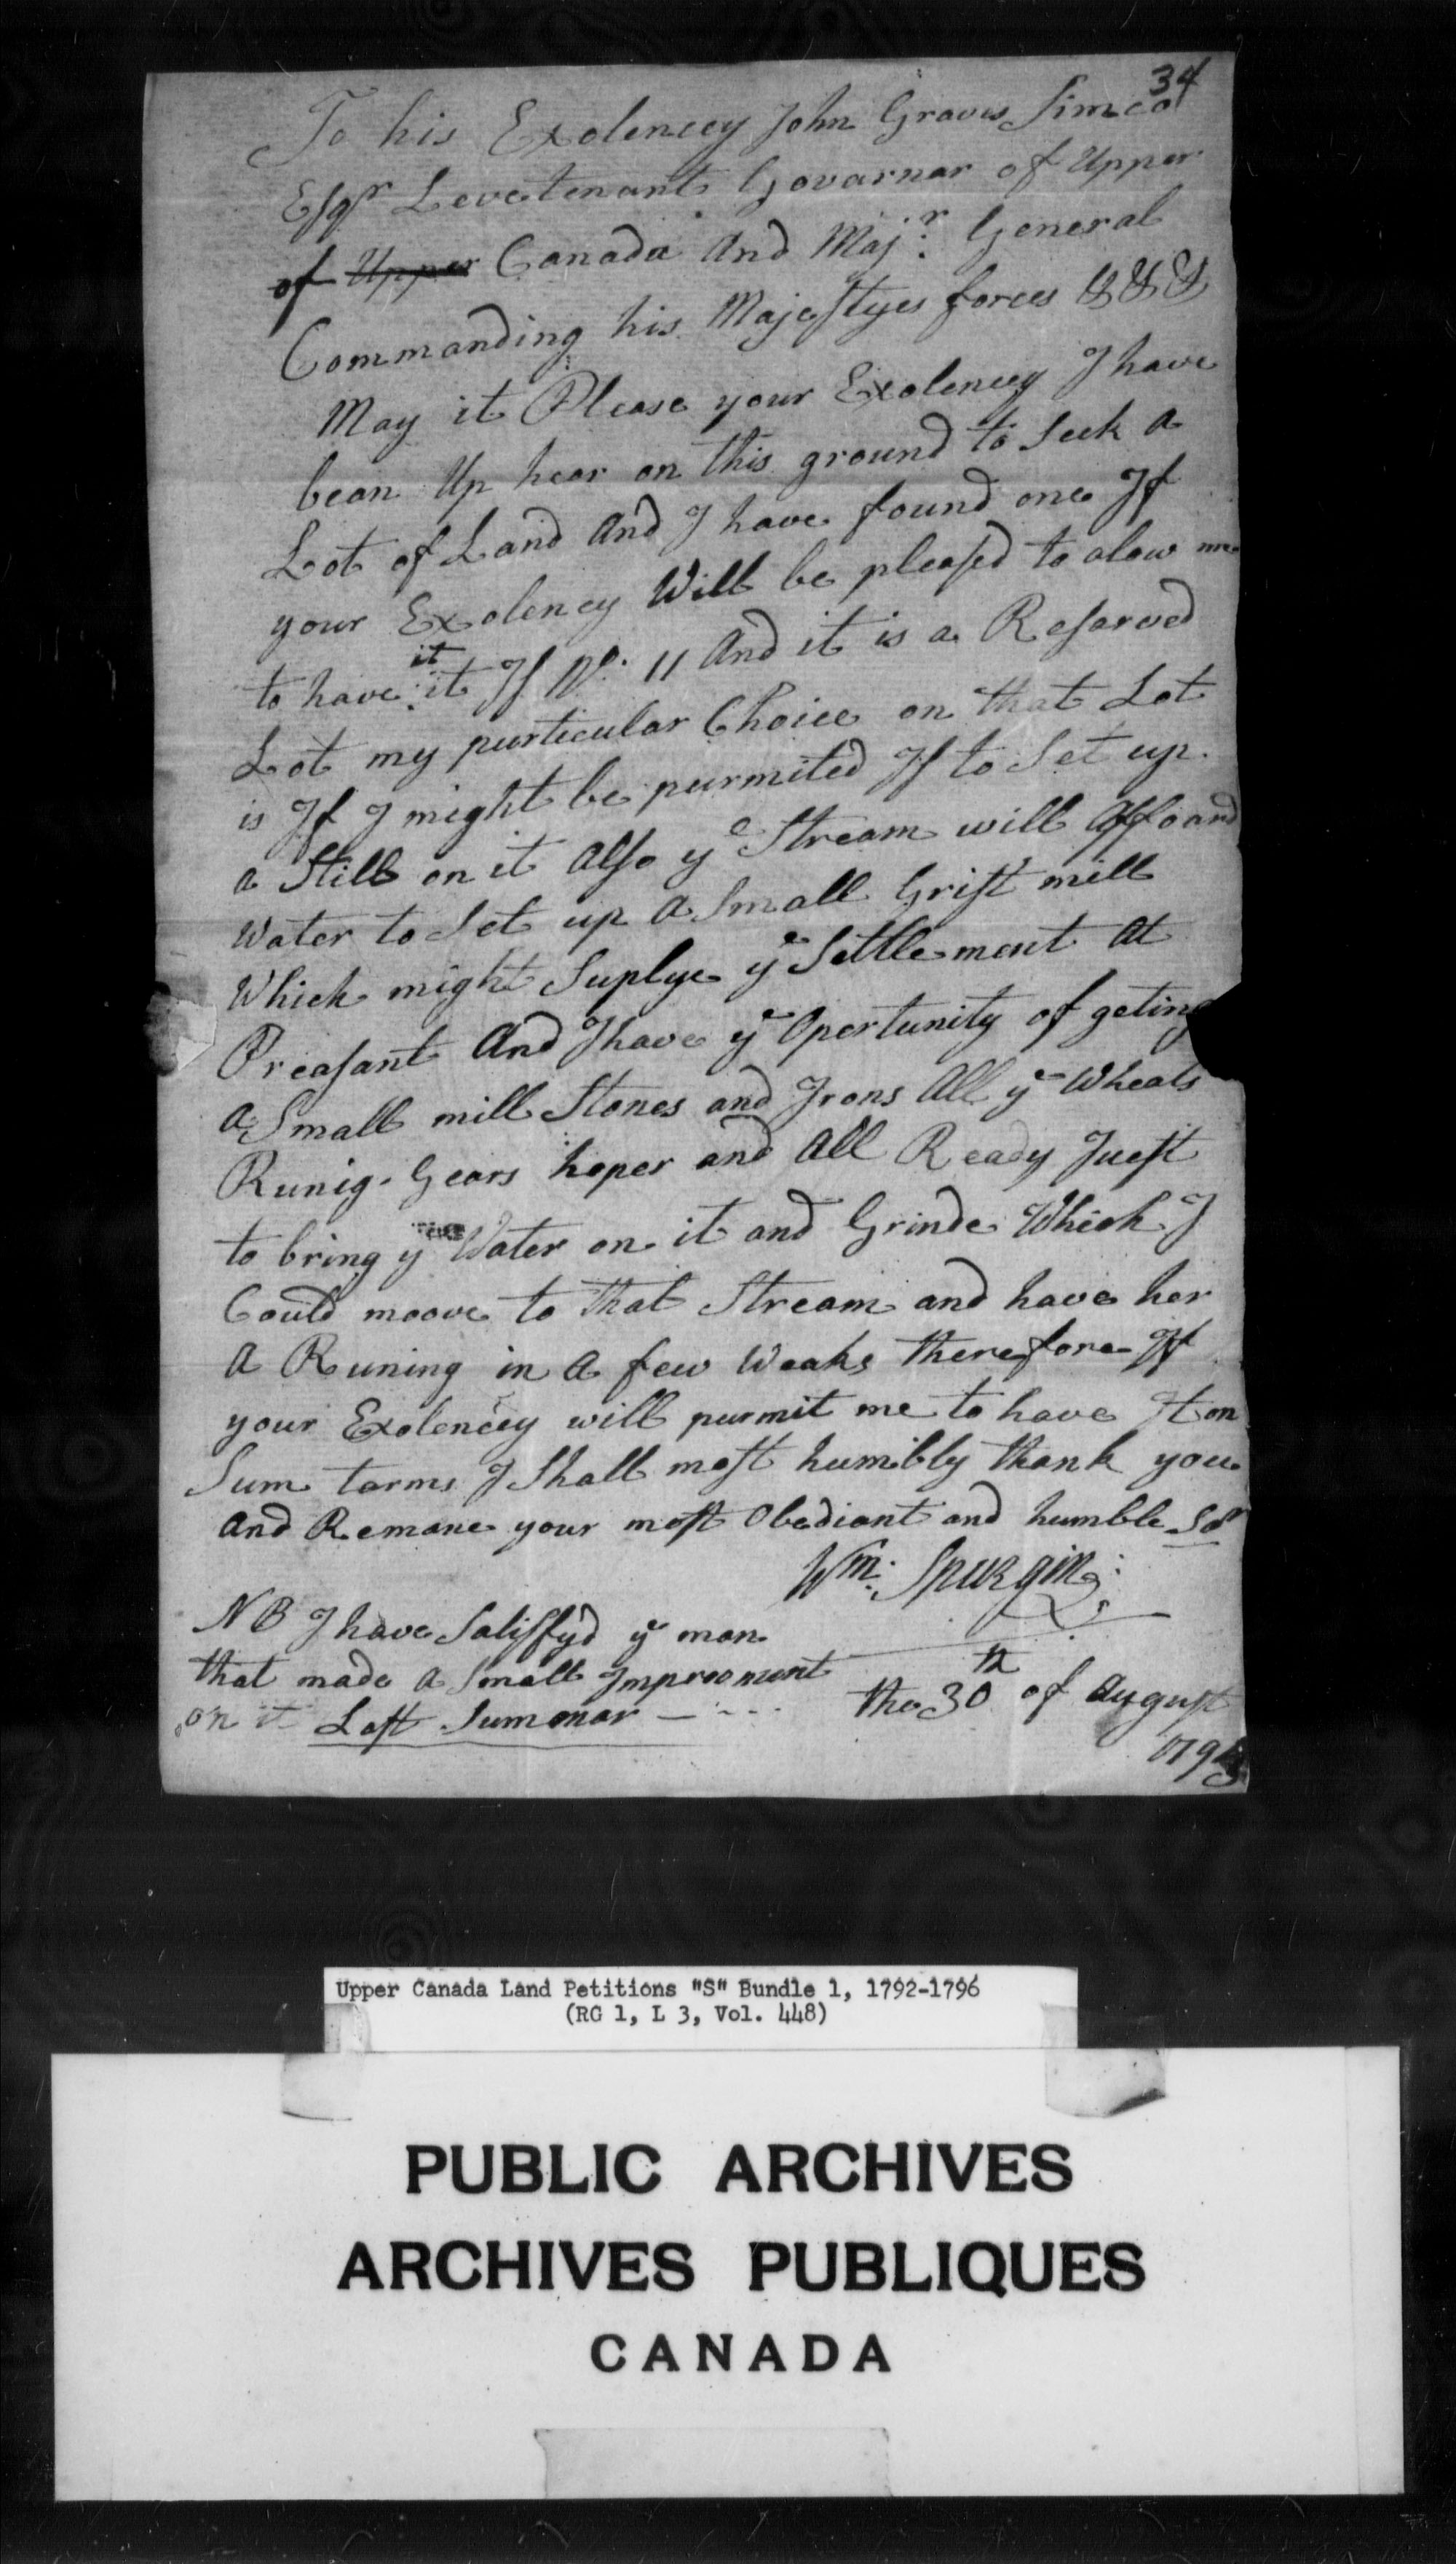 34
To his Exolencey John Graves Simco
Esqr Leveetenant Govarnar of Upper
of Upper Canada And Majr. General
Commanding his Majestyes forces &&&
May it Please your Exolencey I have
bean Up hear on this ground to Seek a
Lot of Land And I have found one If
your Exolency Will be pleased to alow me
to have it it If No. 11 And it is a Resarved
Lot my purticular Choice on that Lot
is If I might be purmited If to Set up
a Still on it Also ye Stream will Affoard
Water to Set up A Small Grist mill
Which might Suplye ye Settlement At
Preasant And I have ye Opertunity of geting
a Small mill Stones and Irons All ye Wheals
Runig Gears hoper and All Ready Juest
to bring ye Water on it and Grinde Which I
Could moove to that Stream and have her
A Runing in a few Weaks therefore If
your Exolencey will purmit me to have It on
Sum tarms I Shall most humbly thank you
And Remane your most Obediant and humble Sar
Wm. Spurgin
NB I have Satisfyd ye man
that made a Small Improoment
on it Last Summar
the 30th of August
179
Upper Canada Land Petitions "S" Bundle 1, 1792-1796
(RG 1, L 3, Vol. 448)
PUBLIC ARCHIVES
ARCHIVES PUBLIQUES
CANADA